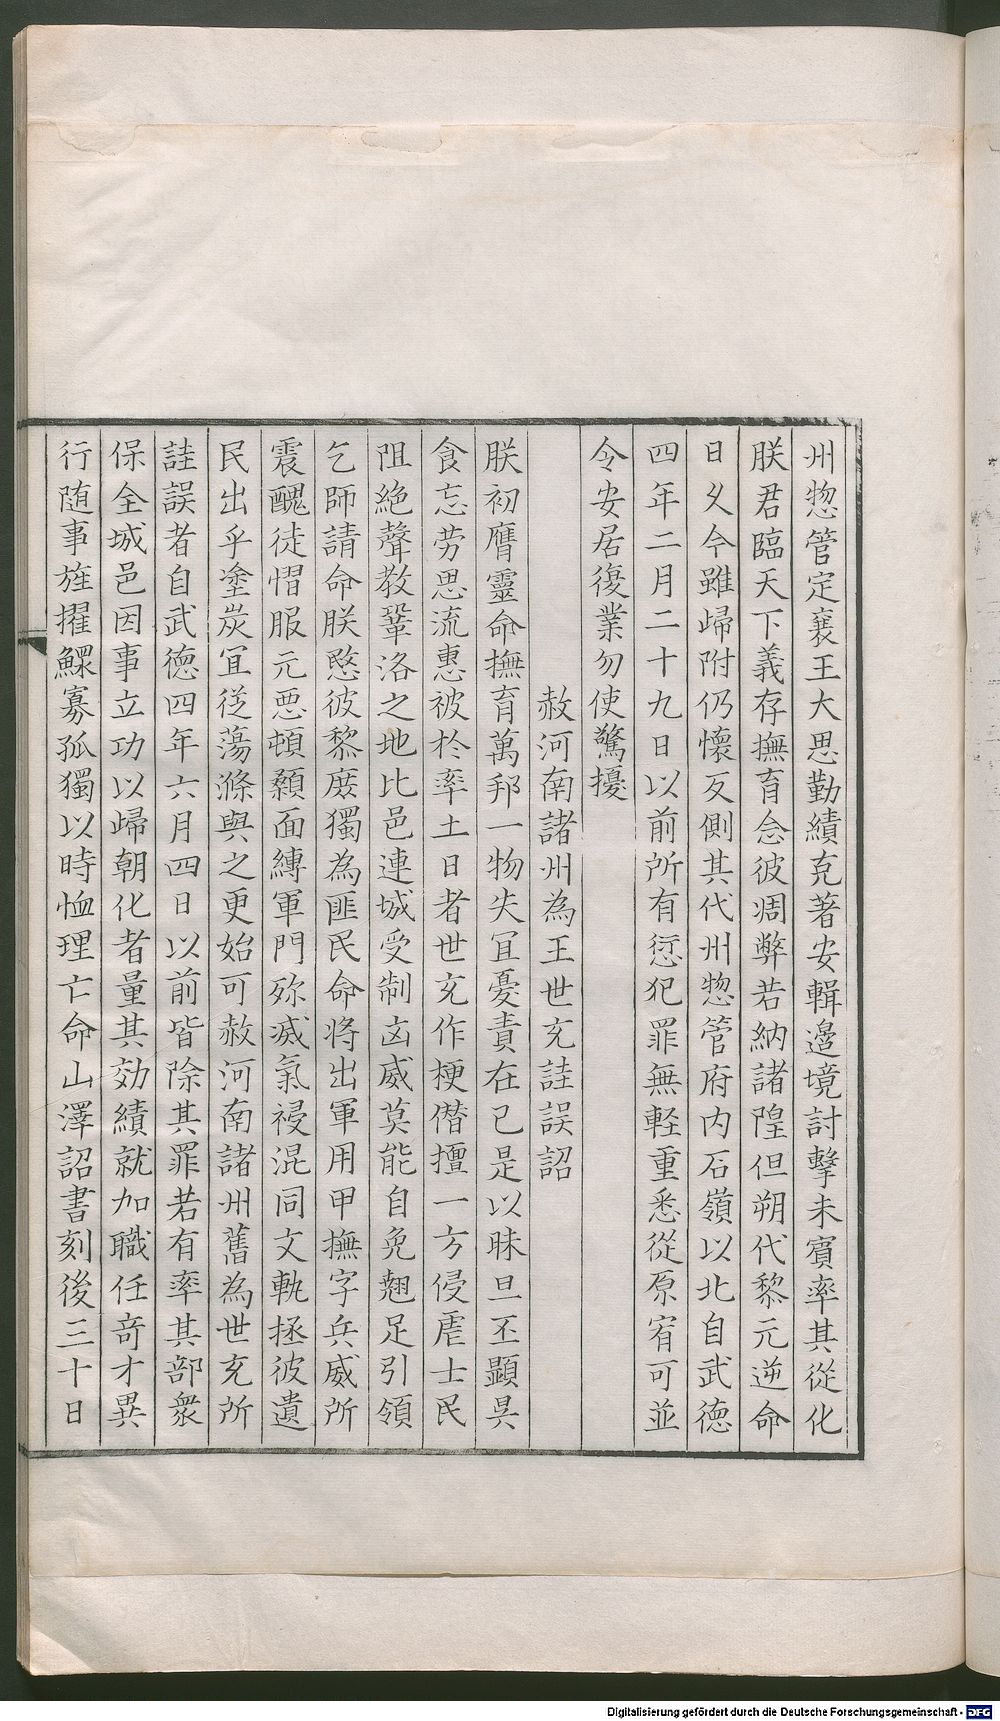 州惣管定襄王大恩勤績克著安輯邊境討擊未賓率其從化
朕君臨天下義存撫育念彼凋弊若納諸隍但朔代黎元逆命
日久今雖歸附仍懷反側其代州惣管府内石嶺以北自武德
四年二月二十九日以前所有愆犯罪無輕重悉從原宥可並
令安居復業勿使驚擾
赦河南諸州為王世充詿誤詔
朕初膺靈命撫育萬邦一物失宜憂責在已是以昧旦丕顯昃
食忘劳思流惠被於率土日者世充作梗僭擅一方侵虐士民
阻絶聲教鞏洛之地比邑連城受制凶威莫能自免翹足引領
乞師請命朕愍彼黎庶獨為匪民命将出軍用甲撫字兵威所
震醜徒慴服元惡頓顙面縛軍門殄滅氣祲混同文軌拯彼遺
民出乎塗炭宜從蕩滌與之更始可赦河南諸州舊為世充所
詿誤者自武德四年六月四日以前皆除其罪若有率其部衆
保全城邑因事立功以歸朝化者量其効績就加職任竒才異
行随事旌擢鰥寡孤獨以時恤理亡命山澤詔書刻後三十日
Digitalisierung gefördert durch die Deutsche Forschungsgemeinschaft - DFG